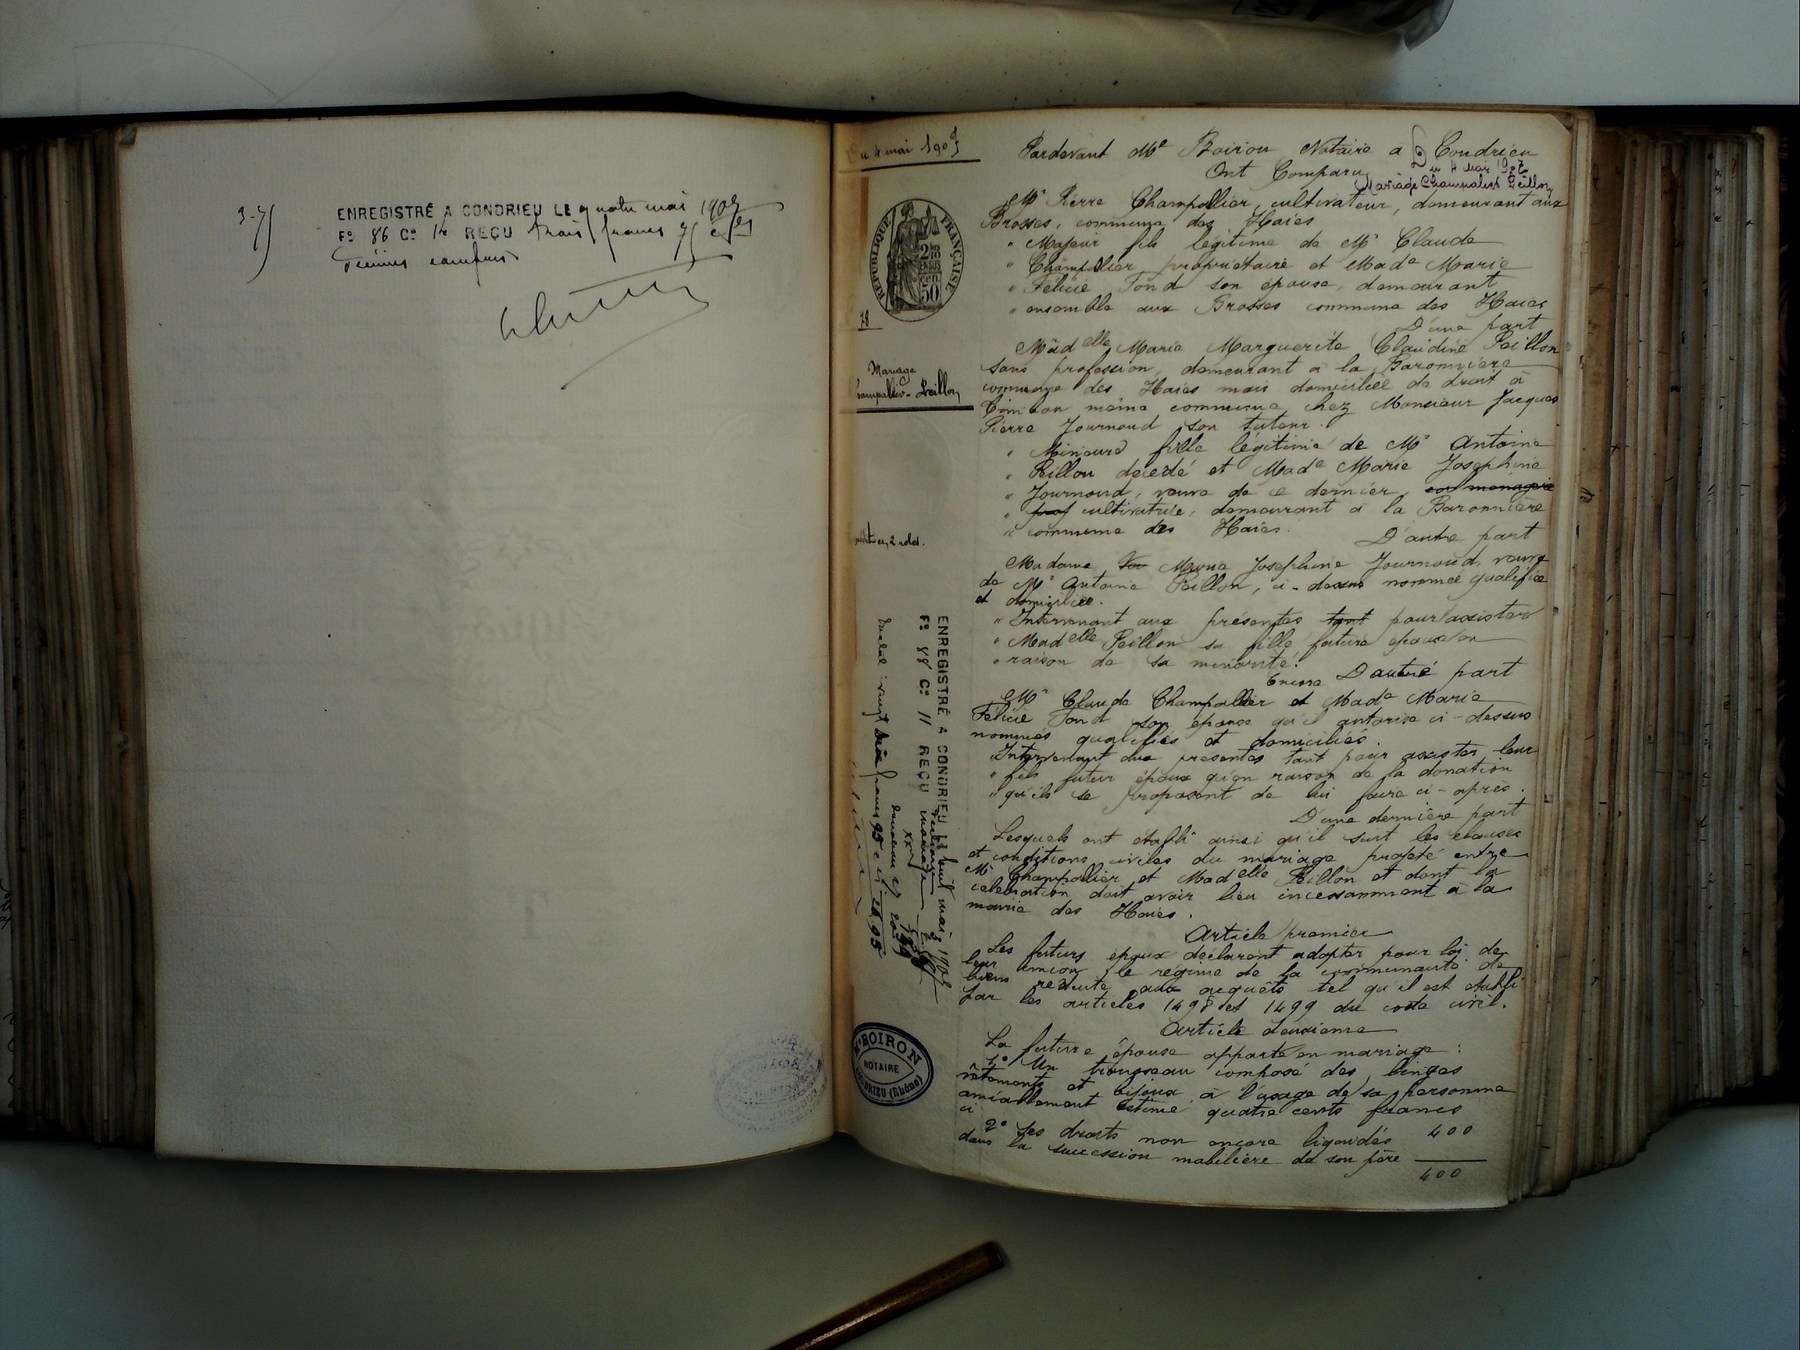 3-75
ENREGISTRÉ A CONDRIEU LE quatre mai 1907
F° 86 C° 12 REÇU trois francs 75 c
Décimes compris
Du 4 mai 1907
RÉPUBLIQUE FRANÇAISE
2 DES EN SUS
50
78
Mariage
Champallier-Peillon
ENREGISTRÉ A CONDRIEU LE huit mai 1907
F° 88 C° 11 REÇU mariage
M° BOIRON
NOTAIRE
CONDRIEU (Rhône)
Pardevant Me Boiron Notaire a Condrieu
Du 4 Mai 1907
Ont Comparu
Mariage Champallier Peillon
Mr Pierre Champallier, cultivateur, demeurant aux
Brosses, commune des Haies
" Majeur fils légitime de Mr Claude
" Champallier propriétaire et Made Marie
" Félicie Fond son épouse, demeurant
" ensemble aux Brosses commune des Haies
D'une part
Madelle Marie Marguerite Claudine Peillon
sans profession, demeurant à la Baronnière
commune des Haies mais domiciliée de droit à
même commune chez Monsieur Jacques
Pierre Journoud son tuteur.
" Mineure fille légitime de Mr Antoine
" Peillon décédé et Made Marie Joséphine
" Journoud, veuve de ce dernier, son menagerie
" prof cultivatrice, demeurant à la Baronnière
" commune des Haies.
D'autre part
Madame Vve Marie Joséphine Journoud, veuve
de Mr Antoine Peillon, ci-dessus nommée qualifiée
et domiciliée.
" Intervenant aux présentes tant pour assister
" Madelle Peillon sa fille future épouse en
" raison de sa minorité.
Encore D'autre part
Mr Claude Champallier et Made Marie
Félicie Fond son épouse qu'il autorise ci-dessus
nommés qualifiés et domiciliés.
" Intervenant aux présentes tant pour assister leur
" fils futur époux qu'en raison de la donation
" qu'ils se proposent de lui faire ci-après.
D'une dernière part
Lesquels ont établi ainsi qu'il suit les clauses
et conditions civiles du mariage projeté entre
Mr Champallier et Madelle Peillon et dont la
célébration doit avoir lieu incessamment à la
mairie des Haies.
Article premier
Les futurs époux déclarent adopter pour loi de
leur union le régime de la communauté de
biens réduite aux acquêts tel qu'il est établi
par les articles 1498 et 1499 du code civil.
Article deuxième
La future épouse apporte en mariage :
1° Un trousseau composé des linges
vêtements et bijoux à l'usage de sa personne
amiablement estimé quatre cents francs
ci 400
2° Ses droits non encore liquidés
dans la succession mobilière de son père
400